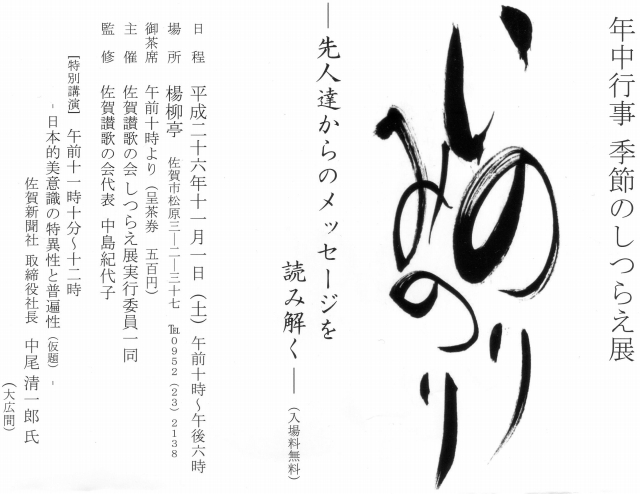 年中行事 季節のしつらえ展
いのり
みのり
―先人達からのメッセージを
読み解く―
(入場料無料)
日程 平成二十六年十一月一日(土) 午前十時～午後六時
場所 楊柳亭 佐賀市松原三―二―三十七 ℡0952(23)2138
御茶席 午前十時より(呈茶券 五百円)
主催 佐賀讃歌の会 しつらえ展実行委員一同
監修 佐賀讃歌の会代表 中島紀代子
[特別講演] 午前十一時十分～十二時
- 日本的美意識の特異性と普遍性(仮題) -
佐賀新聞社 取締役社長 中尾清一郎氏
(大広間)